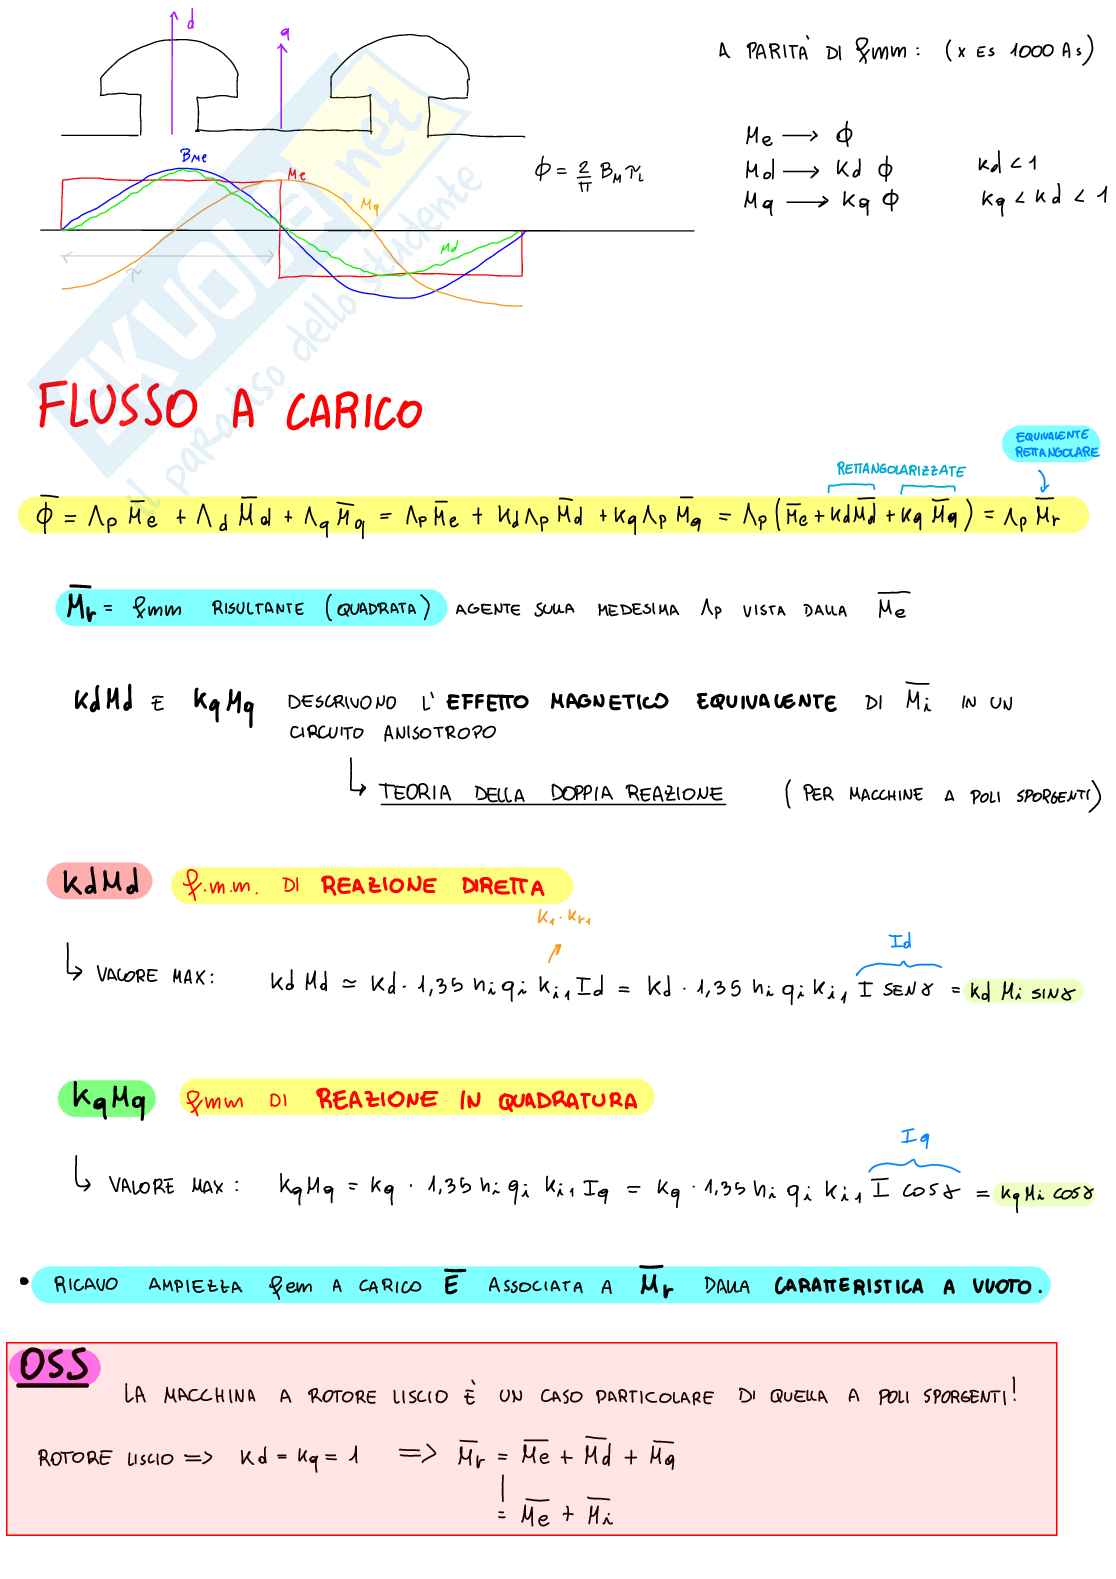 d
q
A PARITÀ DI fmm: (x ES 1000 As)
BMe
Me
Mq
Md
τ
ϕ = 2/π BM τ L
Me → ϕ
Md → Kd ϕ   Kd < 1
Mq → Kq ϕ   Kq < Kd < 1
SKUOLA.net
il paradiso dello studente
FLUSSO A CARICO
EQUIVALENTE
RETTANGOLARE
RETTANGOLARIZZATE
ϕ̅ = Λp M̅e + Λd M̅d + Λq M̅q = Λp M̅e + Kd Λp M̅d + Kq Λp M̅q = Λp (M̅e + Kd M̅d + Kq M̅q) = Λp M̅r
M̅r = fmm RISULTANTE (QUADRATA) AGENTE SULLA MEDESIMA Λp VISTA DALLA M̅e
KdMd E KqMq DESCRIVONO L' EFFETTO MAGNETICO EQUIVALENTE DI M̅i IN UN
CIRCUITO ANISOTROPO
↳ TEORIA DELLA DOPPIA REAZIONE (PER MACCHINE A POLI SPORGENTI)
KdMd f.m.m. DI REAZIONE DIRETTA
K1 · Kr1
Id
↳ VALORE MAX: Kd Md ≃ Kd · 1,35 ni qi Ki1 Id = Kd · 1,35 ni qi Ki1 I SENγ = Kd Mi SINγ
KqMq fmm DI REAZIONE IN QUADRATURA
Iq
↳ VALORE MAX: KqMq = Kq · 1,35 ni qi Ki1 Iq = Kq · 1,35 ni qi Ki1 I COSγ = Kq Mi COSγ
• RICAVO AMPIEZZA fem A CARICO E̅ ASSOCIATA A M̅r DALLA CARATTERISTICA A VUOTO.
OSS
LA MACCHINA A ROTORE LISCIO È UN CASO PARTICOLARE DI QUELLA A POLI SPORGENTI!
ROTORE LISCIO => Kd = Kq = 1 => M̅r = M̅e + M̅d + M̅q
= M̅e + M̅i